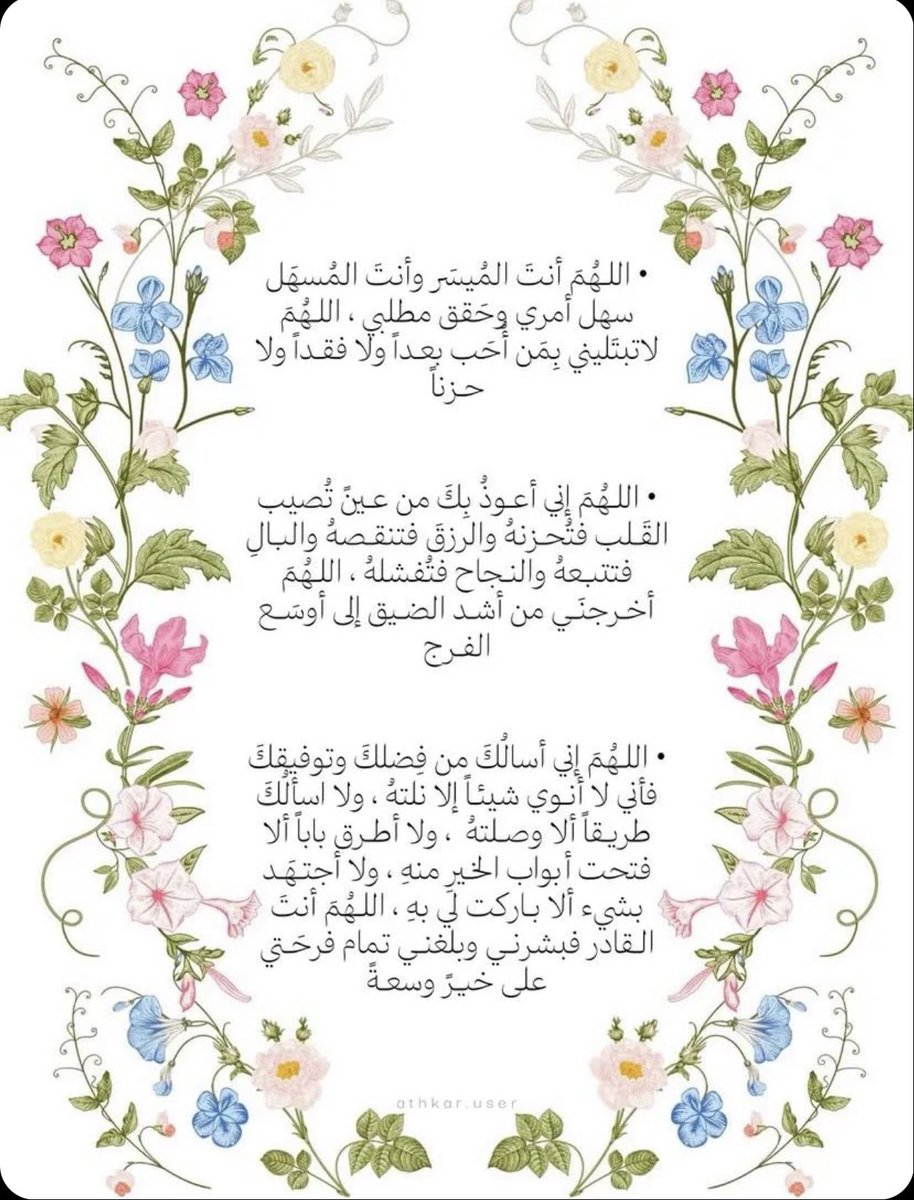 • اللـهُمَ أنتَ المُيسَر وأنتَ المُسهَل
سهل أمري وحَقق مطلبي ، اللـهُمَ
لاتبتَليني بِمَن أُحَب بعـداً ولا فقـداً ولا
حـزناً
• اللـهُمَ إني أعـوذُ بِكَ من عـينً تُصيب
القَـلب فتُحـزنهُ والرزقَ فتنقـصهُ والبـالِ
فتتبـعهُ والنـجاح فتُفشلهُ ، اللـهُمَ
أخـرجنَـي من أشـد الضـيق إلى أوسَـع
الفـرج
• اللـهُمَ إني أسالُكَ من فِضلكَ وتوفيقكَ
فأني لا أنـوي شيئـاً إلا نلتهُ ، ولا اسألُكَ
طريـقاً ألا وصـلتهُ ، ولا أطـرق باباً ألا
فتحت أبواب الخيرِ منهِ ، ولا أجتـهَـد
بشيء ألا بـاركت لي بهِ ، اللـهُمَ أنتَ
الـقادر فبشرنـي وبلغنـي تمام فرحَـتي
على خيـرً وسعـةً
athkar.user